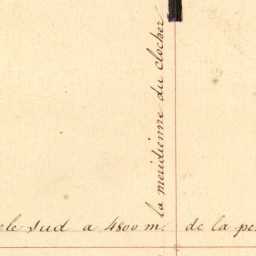 la meridienne du clocher
le sud a 4800 m. de la